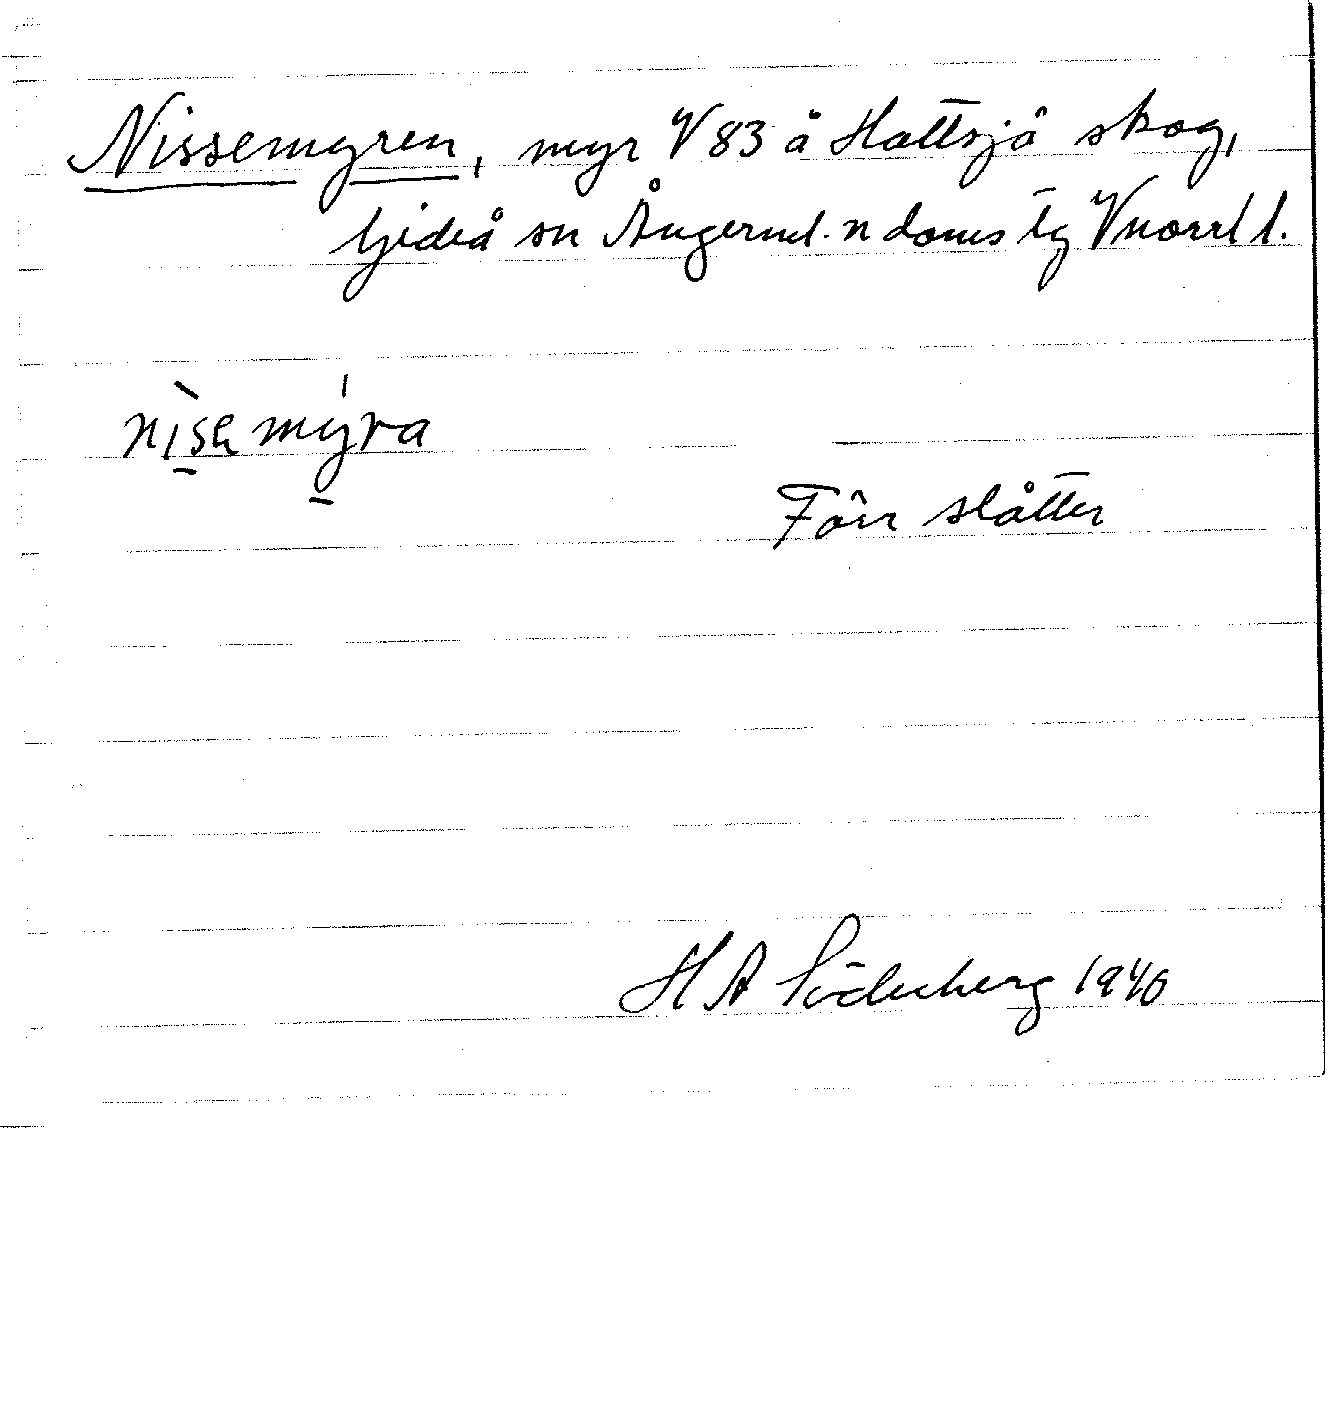 Nissemyren, myr V 83 å Hattsjö skog,
Gideå sn Ångerml. n doms tg Vnorrl l.
nìsa mýra
Förr slåtter
H A Söderberg 1940